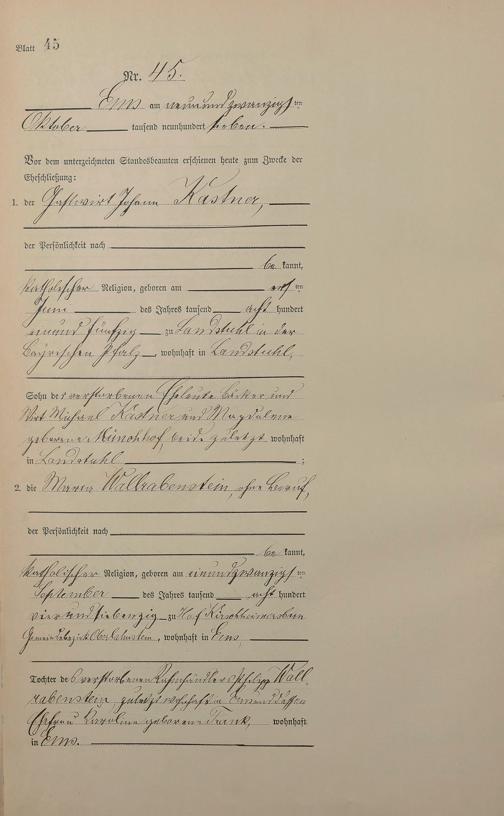 Blatt 45
Nr. 45.
Ems am neunundzwanzigsten
Oktober tausend neunhundert sieben.
Vor dem unterzeichneten Standesbeamten erschienen heute zum Zwecke der
Eheschließung:
1. der Gastwirt Johann Kastner,
der Persönlichkeit nach
be kannt,
katholischer Religion, geboren am ersten
Juni des Jahres tausend acht hundert
neunundfünfzig zu Landstuhl in der
Bayrischen Pfalz, wohnhaft in Landstuhl,
Sohn der verstorbenen Eheleute Bäcker und
Wirt Michael Kastner und Magdalene
geborene Münchhof, beide zuletzt wohnhaft
in Landstuhl ;
2. die Maria Wallrabenstein, ohne Beruf,
der Persönlichkeit nach
be kannt,
katholischer Religion, geboren am einundzwanzigsten
September des Jahres tausend acht hundert
vierundsiebenzig zu Hof
Gemeindebezirk Oberlahnstein, wohnhaft in Ems,
Tochter des verstorbenen Philipp Wall-
rabenstein zuletzt wohnhaft in Ems und dessen
Ehefrau Karoline geborene Frank, wohnhaft
in Ems.